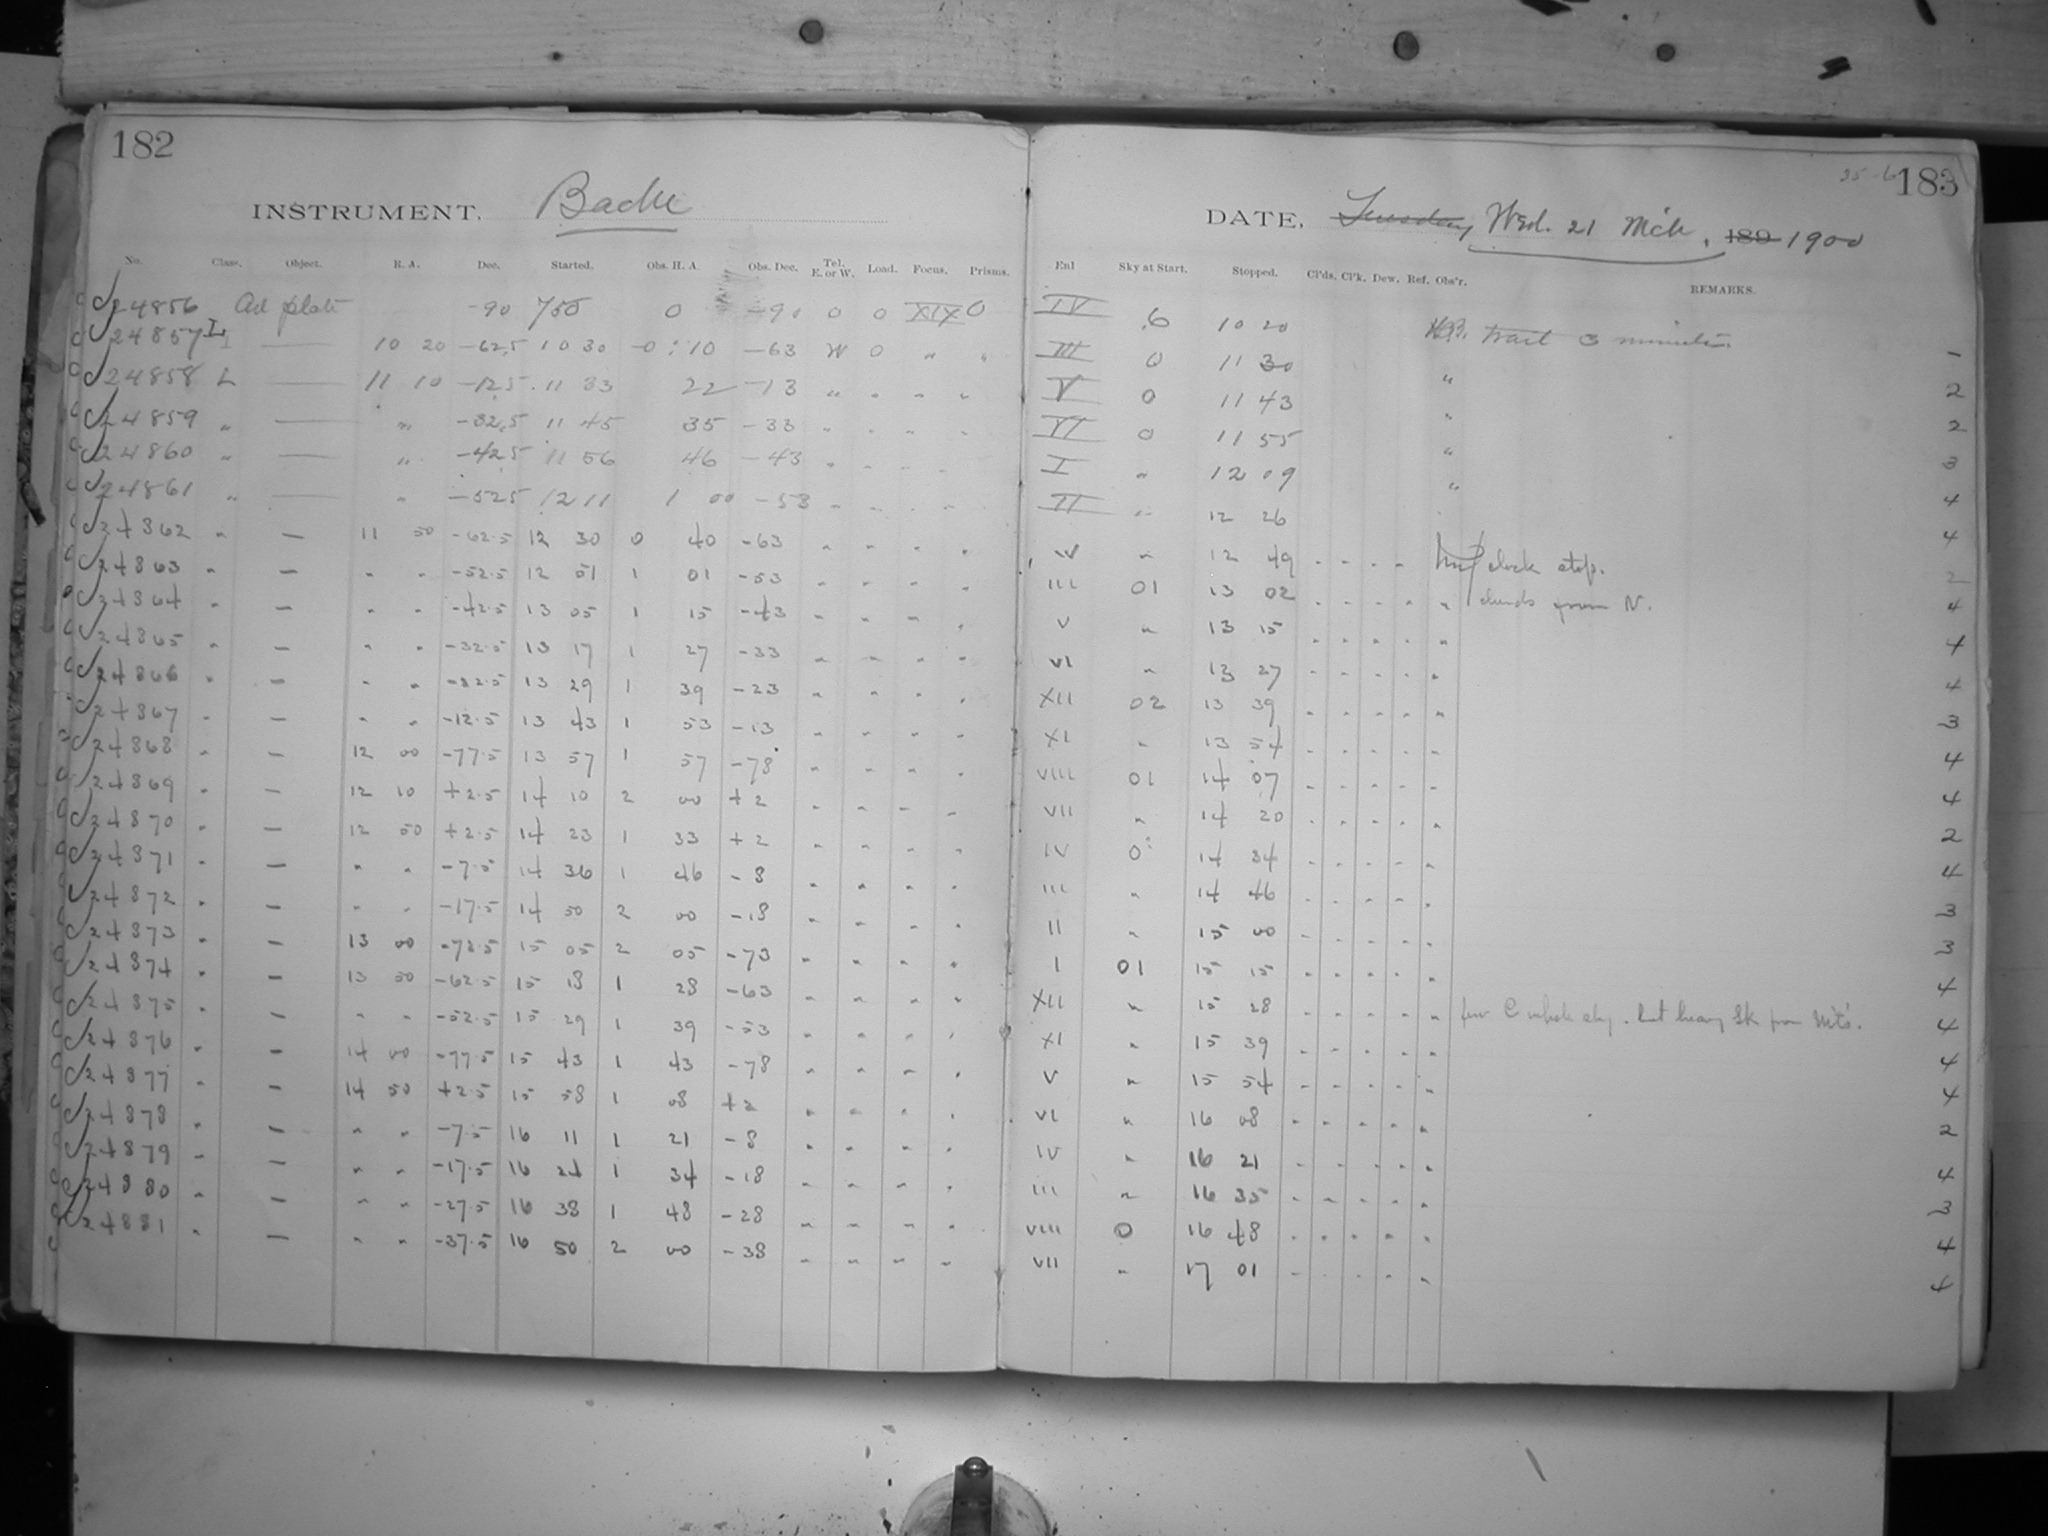 182
INSTRUMENT. Bache
No. Class. Object. R. A. Dec. Started. Obs. H. A. Obs. Dec. Tel. E. or W. Load. Focus. Prisms.
24856 Ad plate -90 750 0 -90 0 0 XIX 0
24857 L — 10 20 -62.5 10 30 -0:10 -63 W 0 " "
24858 L — 11 10 -12.5 11 33 22 -13 " " " "
24859 " — " -32.5 11 45 35 -33 " " " "
24860 " — " -42.5 11 56 46 -43 " " " "
24861 " — " -52.5 12 11 1 00 -53 " " " "
24862 " — 11 50 -62.5 12 30 0 40 -63 " " " "
24863 " — " " -52.5 12 51 1 01 -53 " " " "
24864 " — " " -42.5 13 05 1 15 -43 " " " "
24865 " — " " -32.5 13 17 1 27 -33 " " " "
24866 " — " " -22.5 13 29 1 39 -23 " " " "
24867 " — " " -12.5 13 43 1 53 -13 " " " "
24868 " — 12 00 -77.5 13 57 1 57 -78 " " " "
24869 " — 12 10 +2.5 14 10 2 00 +2 " " " "
24870 " — 12 50 +2.5 14 23 1 33 +2 " " " "
24871 " — " " -7.5 14 36 1 46 -8 " " " "
24872 " — " " -17.5 14 50 2 00 -18 " " " "
24873 " — 13 00 -72.5 15 05 2 05 -73 " " " "
24874 " — 13 50 -62.5 15 18 1 28 -63 " " " "
24875 " — " " -52.5 15 29 1 39 -53 " " " "
24876 " — 14 00 -77.5 15 43 1 43 -78 " " " "
24877 " — 14 50 +2.5 15 58 1 08 +2 " " " "
24878 " — " " -7.5 16 11 1 21 -8 " " " "
24879 " — " " -17.5 16 24 1 34 -18 " " " "
24880 " — " " -27.5 16 38 1 48 -28 " " " "
24881 " — " " -37.5 16 50 2 00 -38 " " " "
183
DATE, Tuesday, Wed. 21 Mch, 189 1900
Enl Sky at Start. Stopped. Cl'ds. Cl'k. Dew. Ref. Obs'r. REMARKS.
IV 6 10 20 trail 3 minutes.
III 0 11 30 " -
V 0 11 43 " 2
VI 0 11 55 " 2
I " 12 09 " 3
II " 12 26 4
IV " 12 49 " " " " clock stop. 4
III 01 13 02 " " " " " clouds from N. 2
V " 13 15 " " " " " 4
VI " 13 27 " " " " " 4
XII 02 13 39 " " " " " 4
XI " 13 54 " " " " " 3
VIII 01 14 07 " " " " " 4
VII " 14 20 " " " " " 4
IV 0 14 34 " " " " " 2
III " 14 46 " " " " " 4
II " 15 00 " " " " " 3
I 01 15 15 " " " " " 3
XII " 15 28 " " " " " few C whole sky. but heavy Sk from Mts. 4
XI " 15 39 " " " " " 4
V " 15 54 " " " " " 4
VI " 16 08 " " " " " 4
IV " 16 21 " " " " " 2
III " 16 35 " " " " " 4
VIII 0 16 48 " " " " " 3
VII " 17 01 " " " " " 4
4